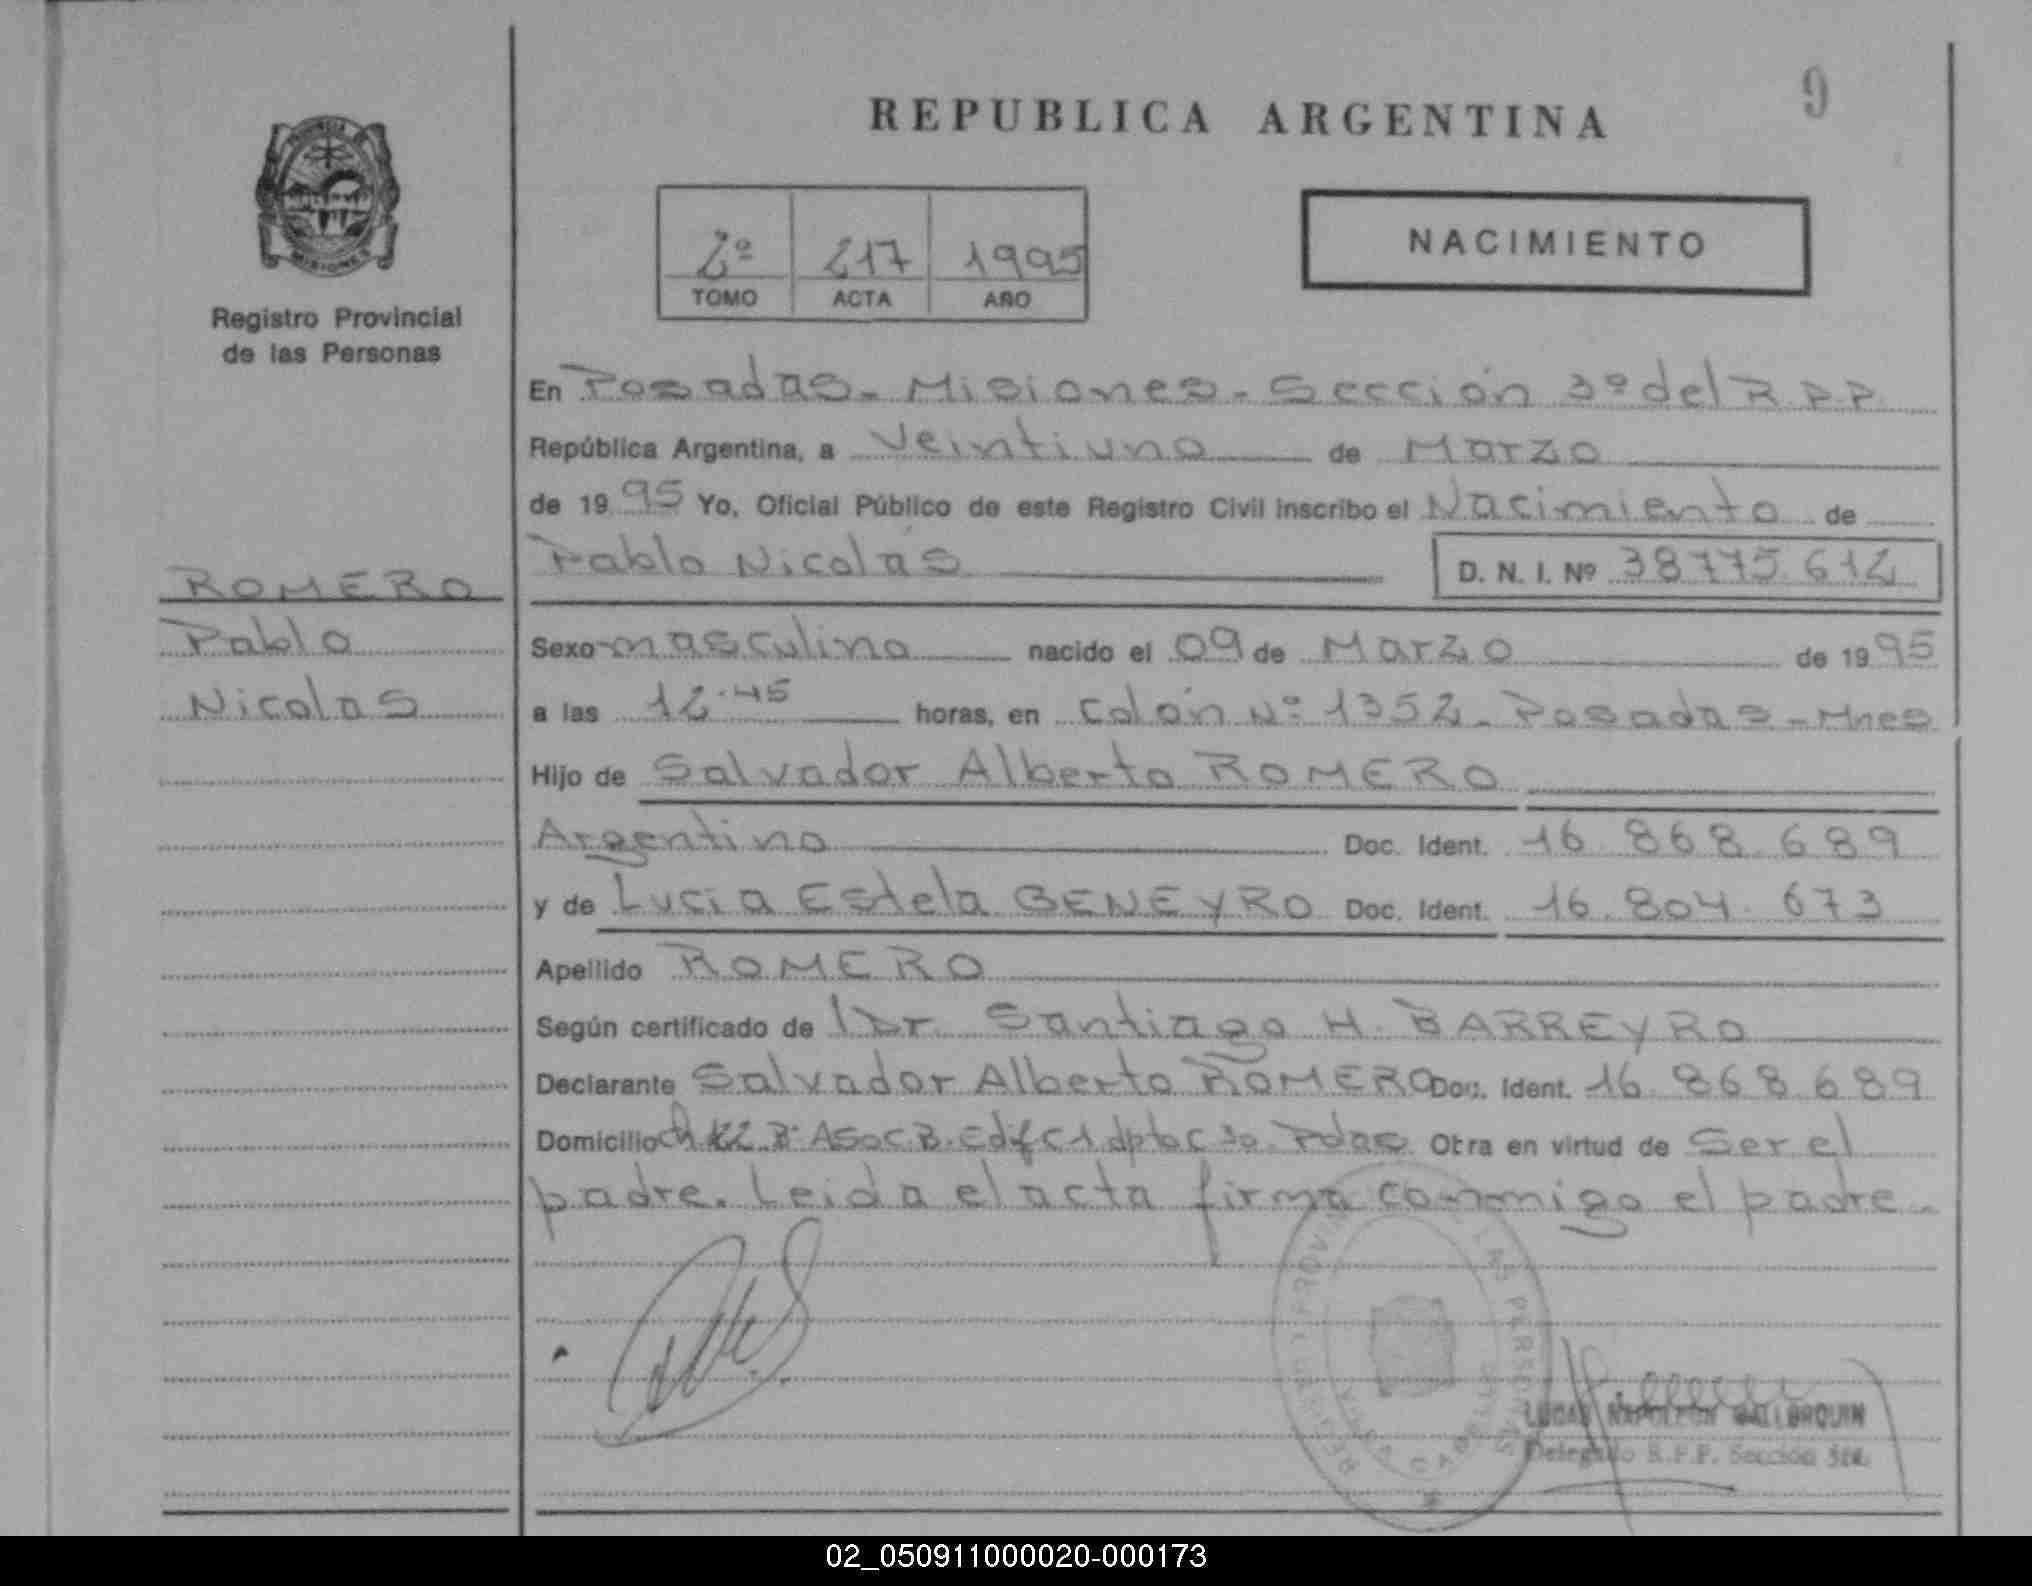 REPUBLICA ARGENTINA
9
PROVINCIA DE
MISIONES
Registro Provincial
de las Personas
2º 217 1995
TOMO ACTA AÑO
NACIMIENTO
En Posadas - Misiones - Sección 3º del R.P.P.
República Argentina, a Veintiuno de Marzo
de 1995 Yo, Oficial Público de este Registro Civil inscribo el Nacimiento de
Pablo Nicolás D. N. I. Nº 38775.612
ROMERO
Pablo
Nicolas
Sexo masculino nacido el 09 de Marzo de 1995
a las 12.45 horas, en Colón Nº 1352 - Posadas - Mnes
Hijo de Salvador Alberto ROMERO
Argentino Doc. Ident. 16.868.689
y de Lucia Estela BENEYRO Doc. Ident. 16.804.673
Apellido ROMERO
Según certificado de Dr. Santiago H. BARREYRO
Declarante Salvador Alberto ROMERO Doc. Ident. 16.868.689
Domicilio Edif C1 dpto C Pdas. Otra en virtud de Ser el
padre. Leida el acta firma conmigo el padre.
LUCAS NAPOLEON BALLORQUIN
Delegado R.P.P. Sección 3ra.
02_050911000020-000173